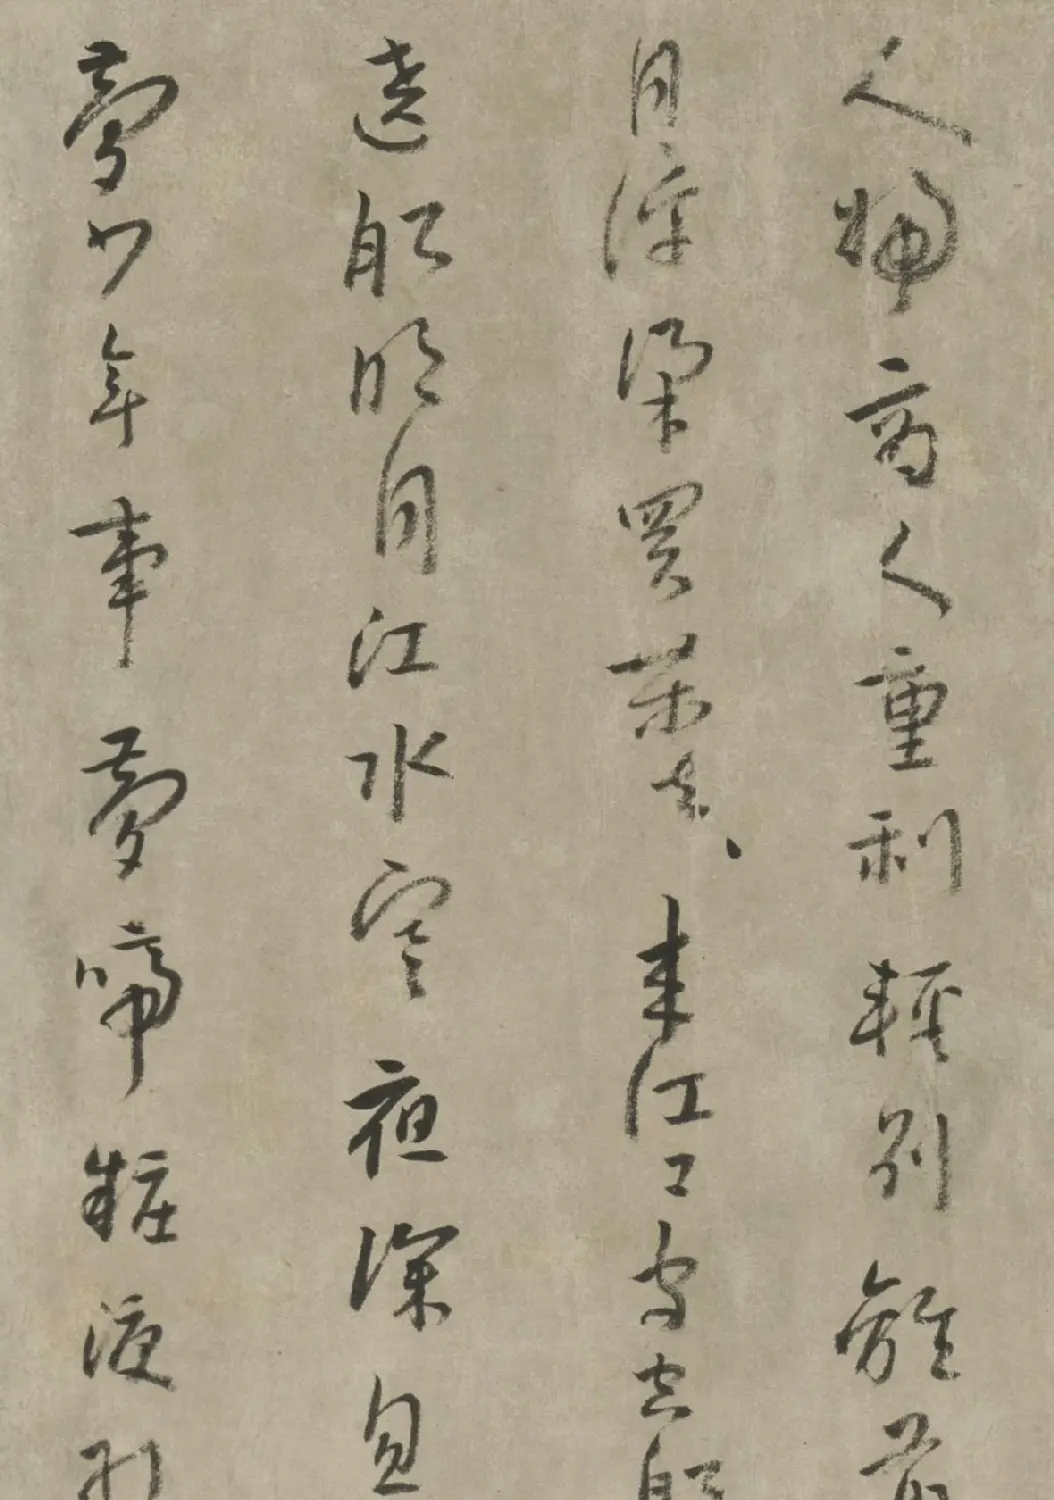 人婦商人重利輕別離前
月浮梁買茶去来江口守空船
遶船明月江水寒夜深忽
夢少年事夢啼粧淚紅